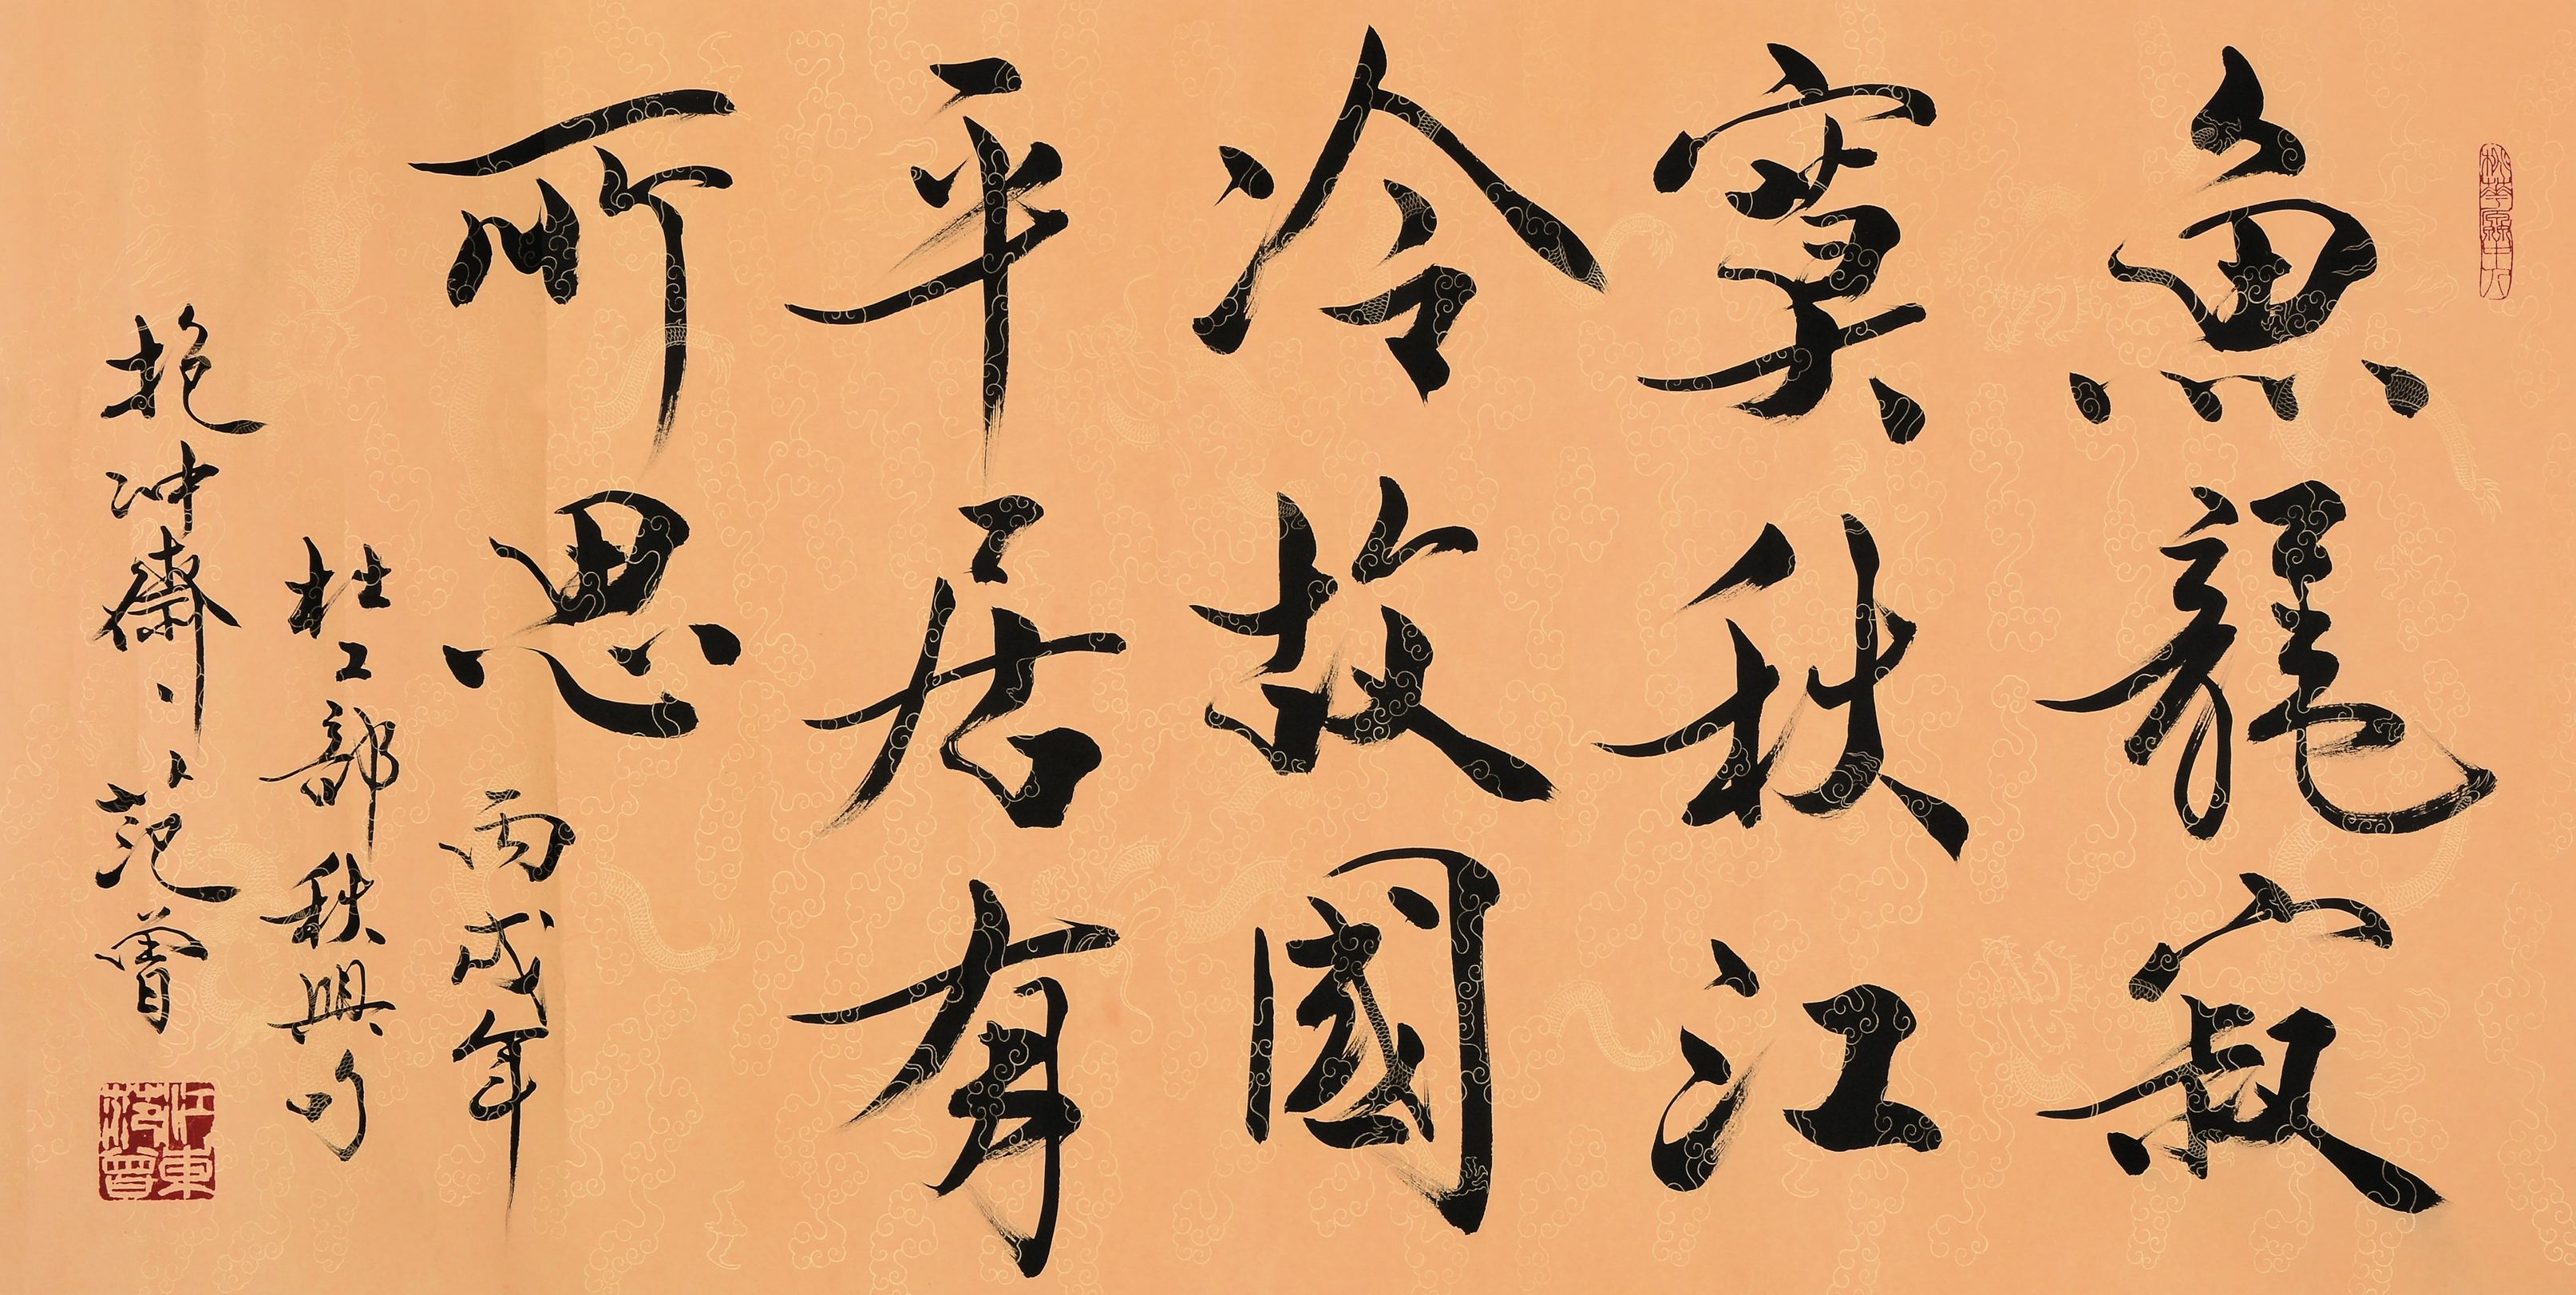 桃華源中人
魚龍寂
寞秋江
冷故國
平居有
所思 丙戌年
杜工部秋興句
抱冲齋 范曾
江東范曾